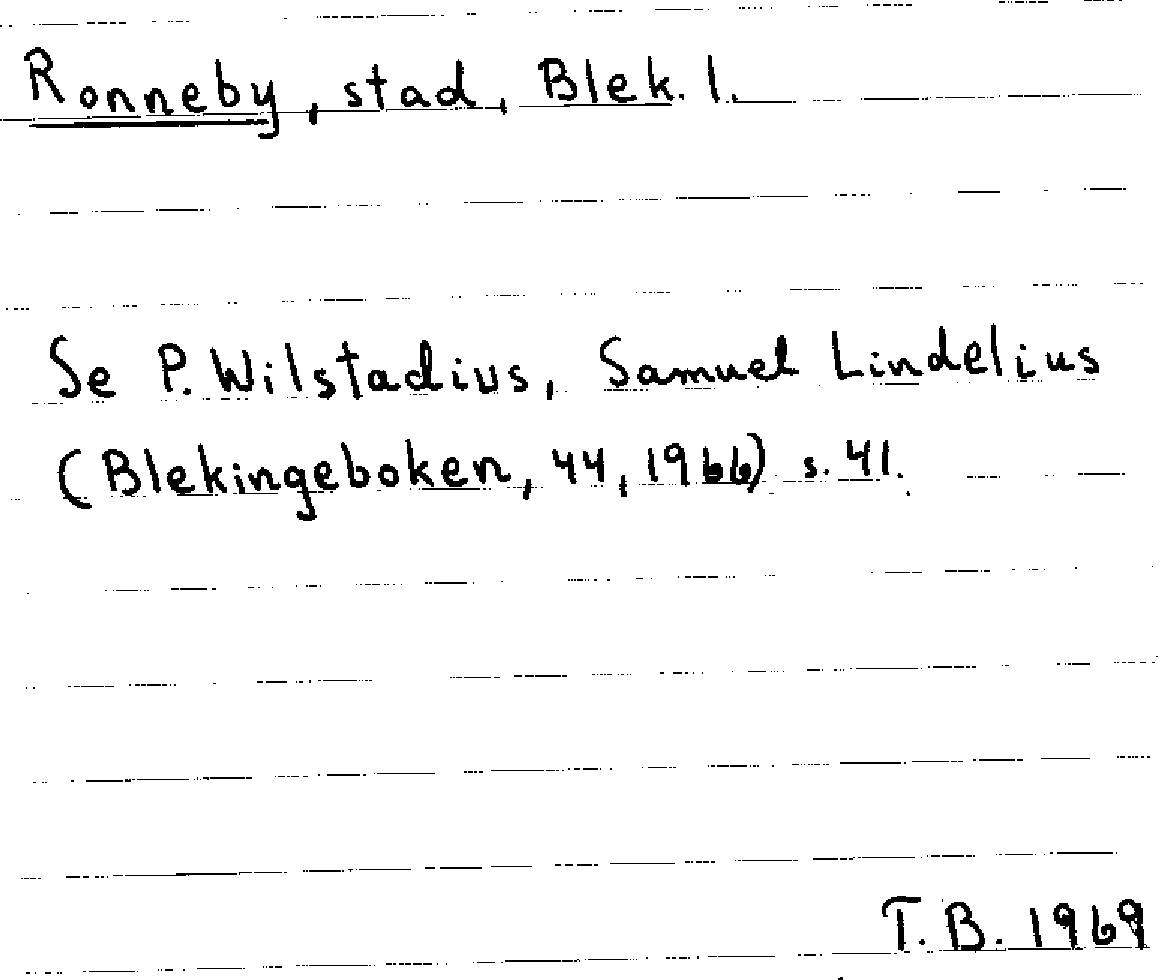 Ronneby, stad, Blek. l.
Se P. Wilstadius, Samuel Lindelius
(Blekingeboken, 44, 1966) s. 41.
T. B. 1969